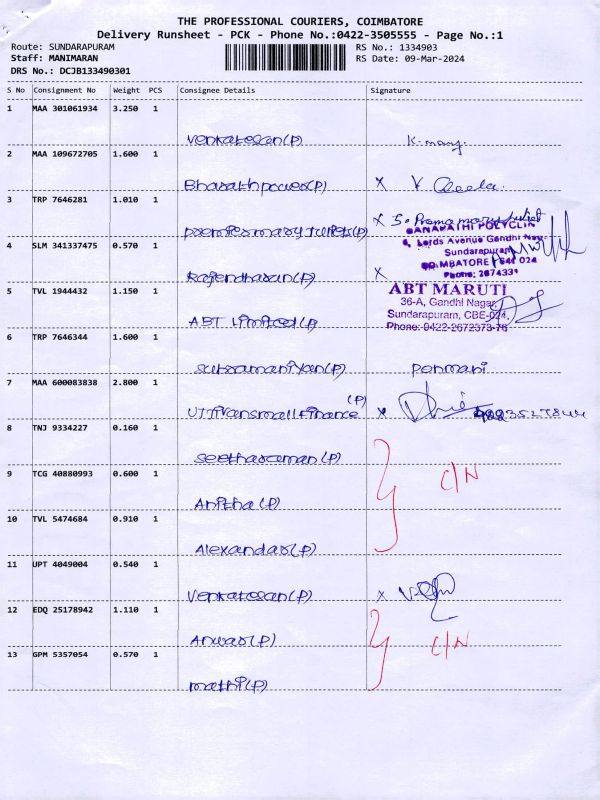 THE PROFESSIONAL COURIERS, COIMBATORE
Delivery Runsheet - PCK - Phone No.:0422-3505555 - Page No.:1
Route: SUNDARAPURAM RS No.: 1334903
Staff: MANIMARAN RS Date: 09-Mar-2024
DRS No.: DCJB133490301
S No Consignment No Weight PCS Consignee Details Signature
1 MAA 301061934 3.250 1
Venkatesan(P) K. many.
2 MAA 109672705 1.600 1
Bharathpaces(P) x V
3 TRP 7646281 1.010 1
premiermary Juliet(P) x S. Prema mary juliet
GANAPATHI POLYCLINIC
4, Lords Avenue Gandhi Nagar
4 SLM 341337475 0.570 1 Sundarapuram
COIMBATORE - 641 024
Rajendhasan(P) x Phone: 2674331
5 TVL 1944432 1.150 1 ABT MARUTI
36-A, Gandhi Nagar,
Sundarapuram, CBE-024.
ABT Limited(P) Phone: 0422-2672373-76
6 TRP 7646344 1.600 1
subramaniyan(P) ponmani
7 MAA 600083838 2.800 1
UTTivansmallfinance (P) x
8 TNJ 9334227 0.160 1
seetharaman(P)
9 TCG 40880993 0.600 1 C/N
Anitha(P)
10 TVL 5474684 0.910 1
Alexandar(P)
11 UPT 4049004 0.540 1
Venkatesan(P) x
12 EDQ 25178942 1.110 1
Anwar(P) C/N
13 GPM 5357054 0.570 1
mathi(P)